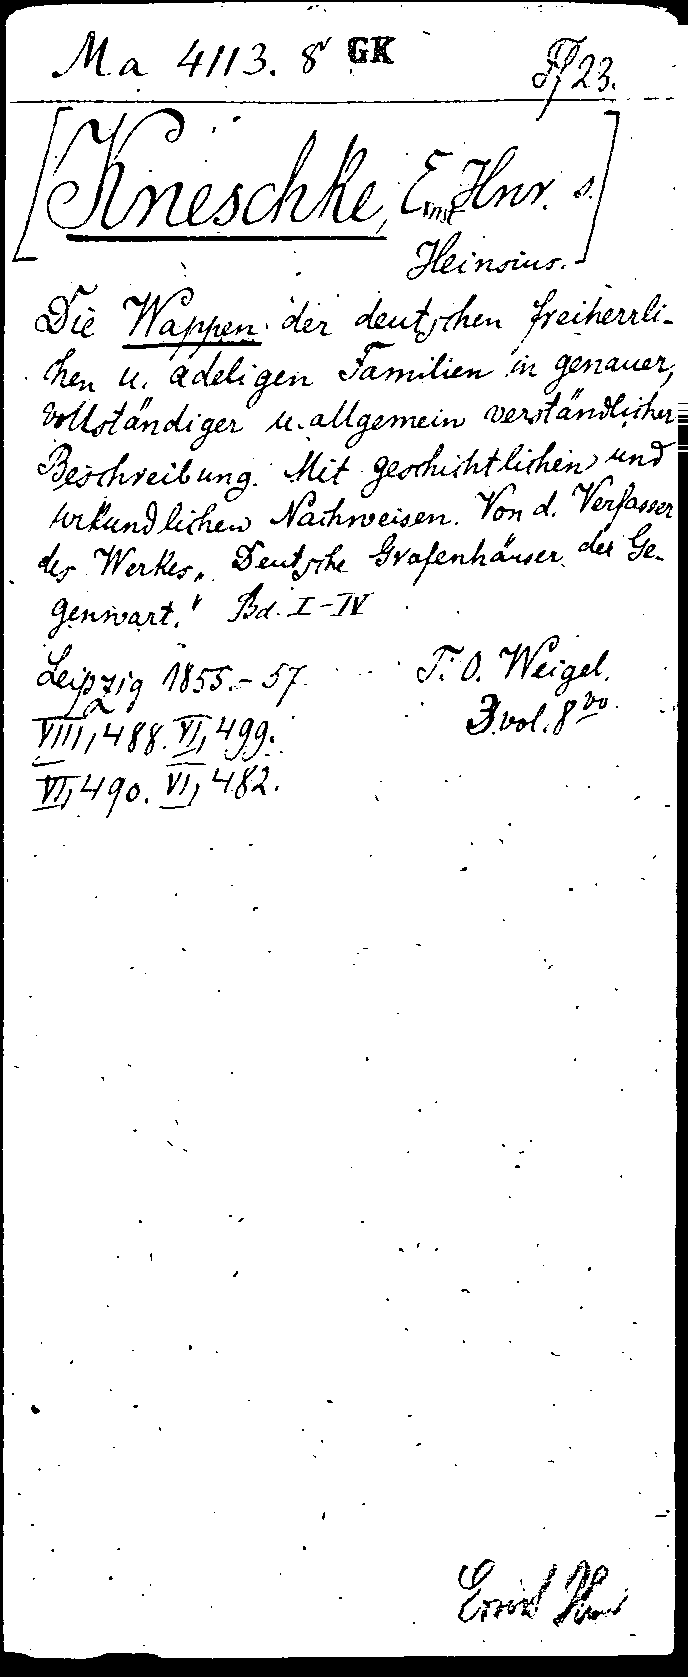 Ma 4113. 8° GK Ff 23.
[Kneschke, Ernst Hnr. s.
Heinsius.]
Die Wappen der deutschen freiherrli-
chen u. adeligen Familien in genauer,
vollständiger u. allgemein verständlicher
Beschreibung. Mit geschichtlichen und
urkundlichen Nachweisen. Von d. Verfasser
des Werkes „Deutsche Grafenhäuser der Ge-
genwart." Bd. I-IV
Leipzig 1855-57 T. O. Weigel.
VIII, 488. VI, 499. 3 vol. 8vo
VI, 490. VI, 482.
Ernst